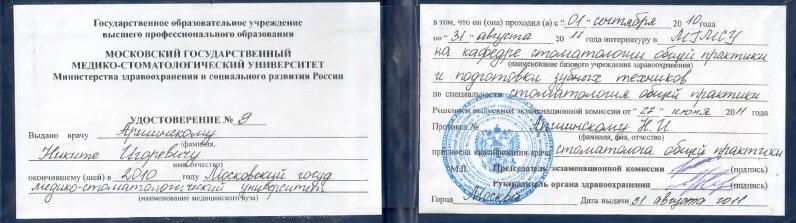 Государственное образовательное учреждение
высшего профессионального образования
МОСКОВСКИЙ ГОСУДАРСТВЕННЫЙ
МЕДИКО-СТОМАТОЛОГИЧЕСКИЙ УНИВЕРСИТЕТ
Министерства здравоохранения и социального развития России
УДОСТОВЕРЕНИЕ № 9
Выдано врачу Аршинскому
(фамилия,
Никите Игоревичу
имя, отчество)
окончившему (шей) в 2010 году Московский госуд
медико-стоматологический университет
(наименование медицинского вуза)
в том, что он (она) проходил (а) с "01" сентября 2010 года
по "31" августа 2011 года интернатуру в МГМСУ
на кафедре стоматологии общей практики
(наименование базового учреждения здравоохранения)
и подготовки зубных техников
по специальности стоматология общей практики
Решением выпускной экзаменационной комиссии от "27" июня 2011
Протокол № Аршинскому Н.И.
(фамилия, имя, отчество)
присвоена квалификация врача стоматолога общей практики
М.П. Председатель экзаменационной комиссии (подпись)
Руководитель органа здравоохранения (подпись)
Город Москва Дата выдачи 31 августа 2011